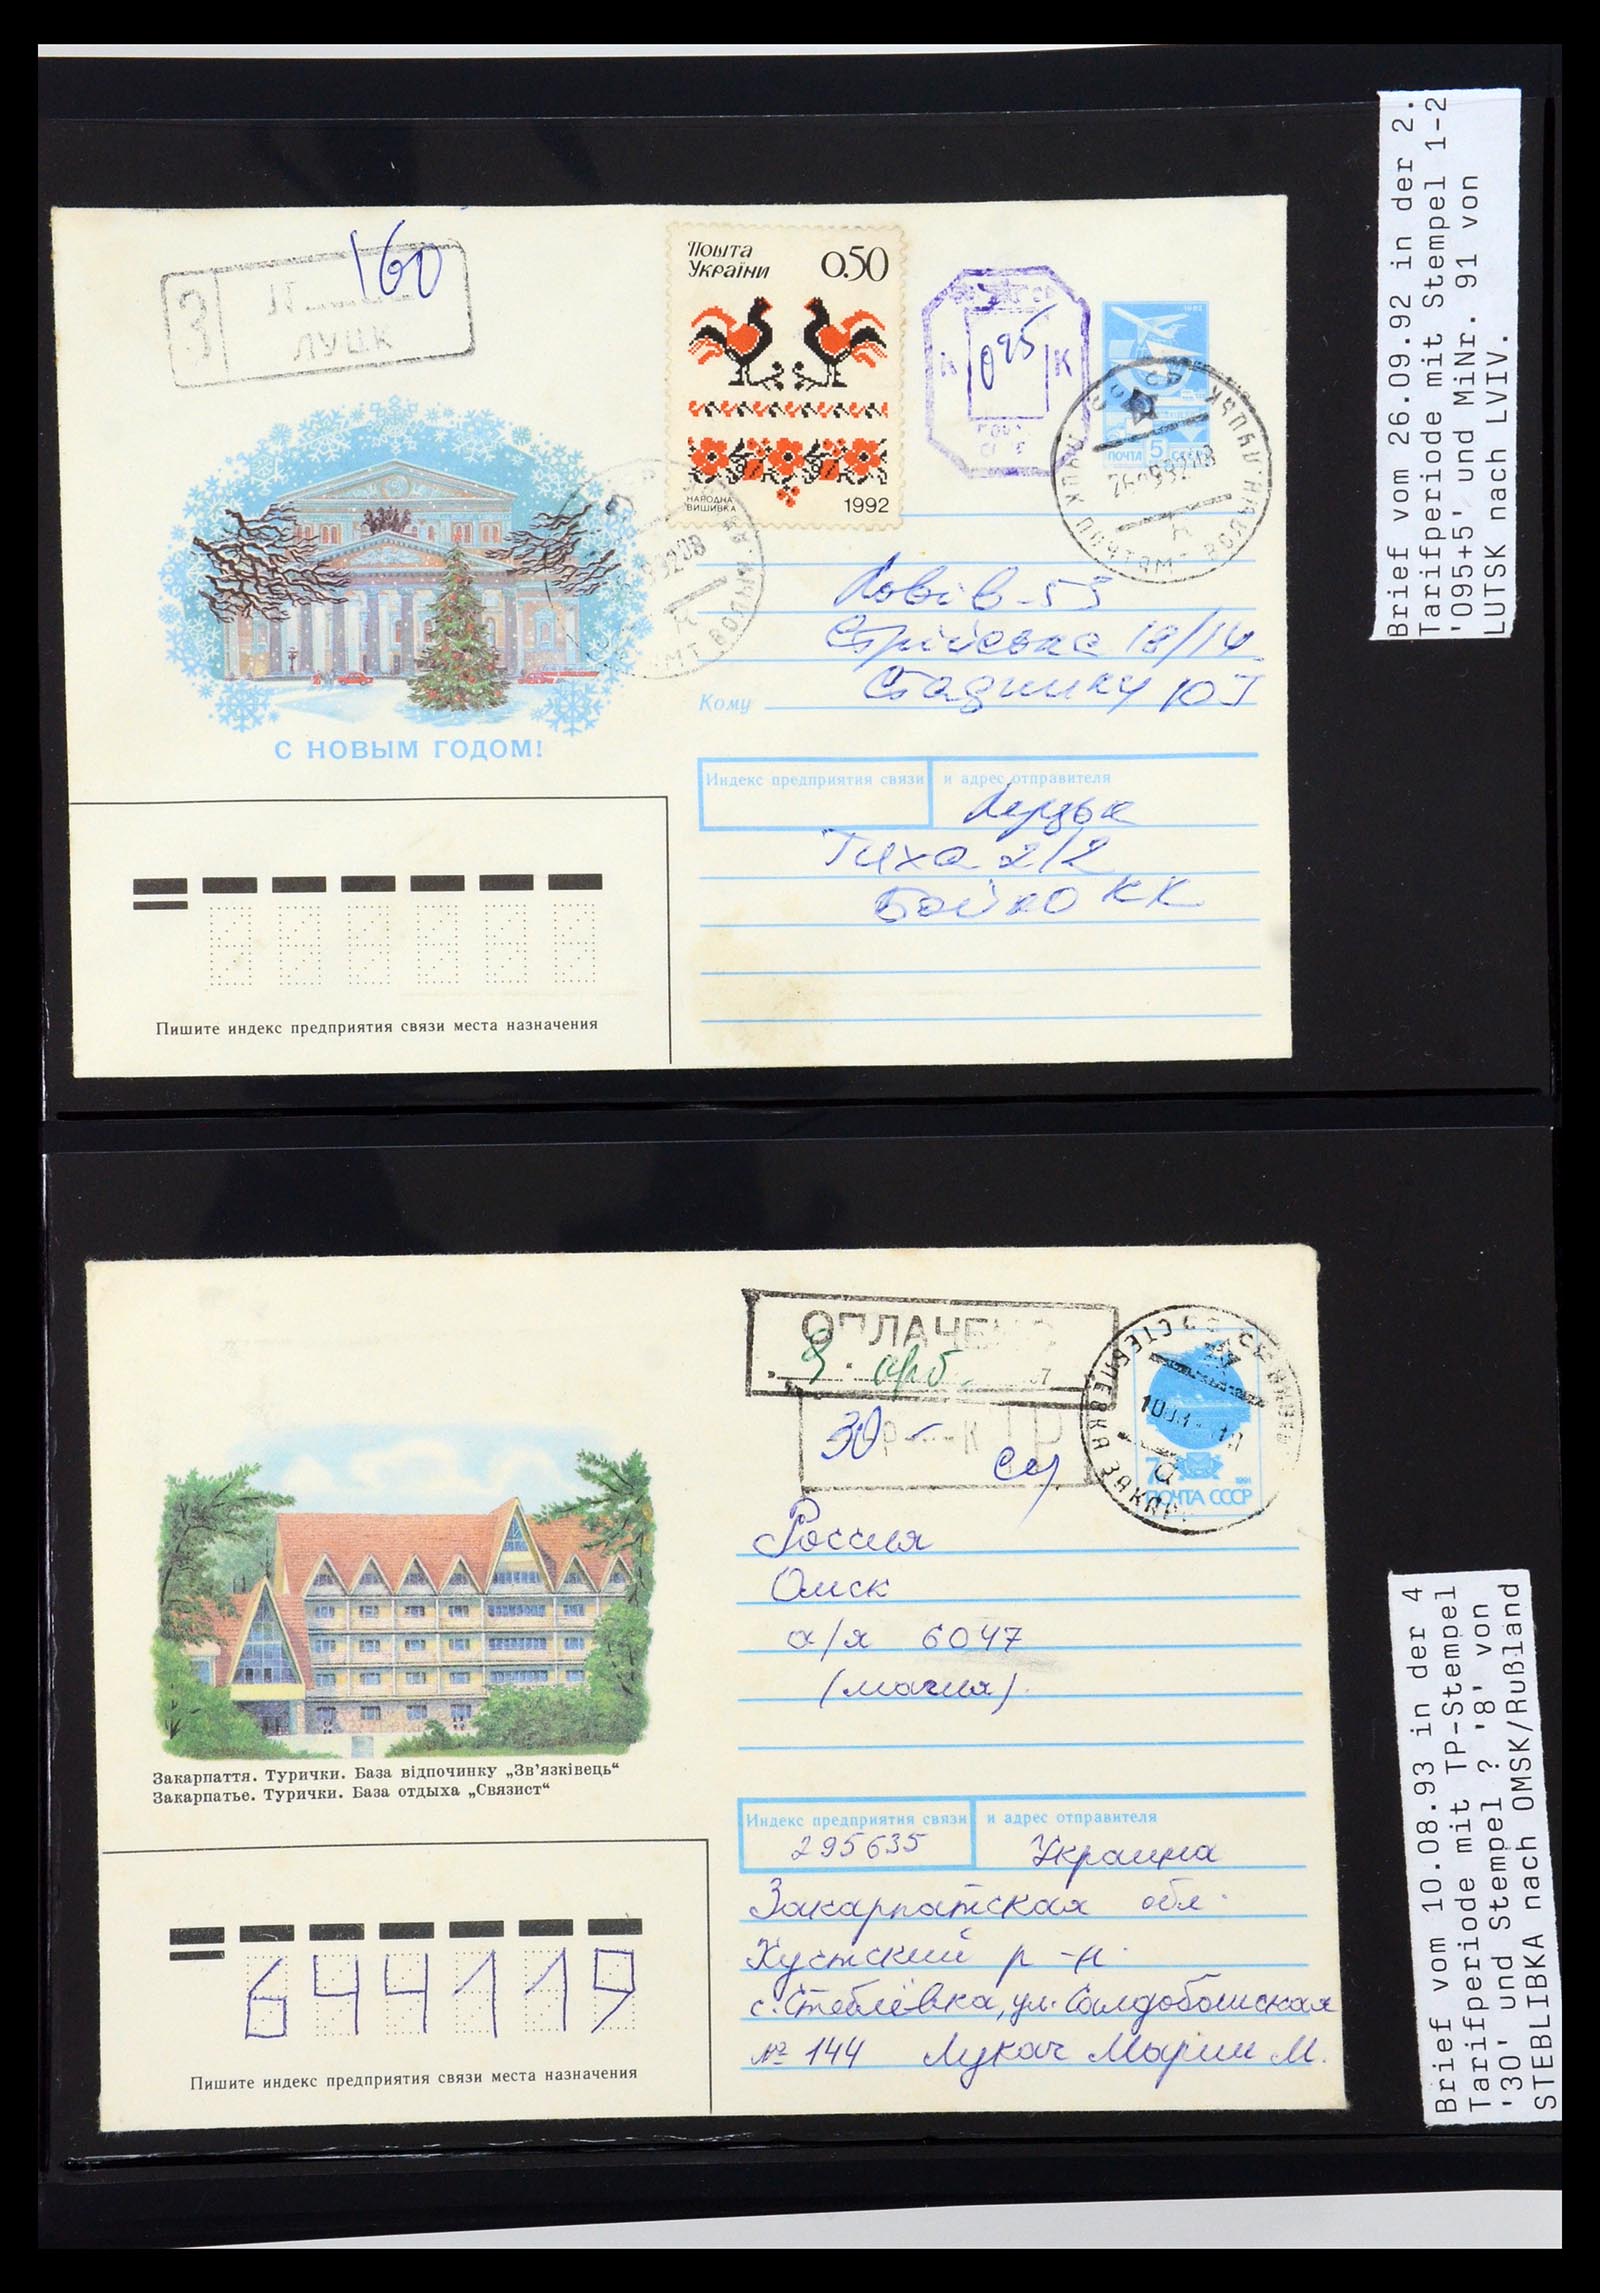 Brief vom 26.09.92 in der 2.
Tarifperiode mit Stempel 1-2
'095+5' und MiNr. 91 von
LUTSK nach LVIV.
160
З
ЛУЦК
Пошта
України
0.50
НАРОДНА
ВИШИВКА
1992
095
К
ПОЧТА 5 СССР
26 09 92 08
Львів-53
Стрийська 18/14
Кому Стаднику Ю І
С НОВЫМ ГОДОМ!
Индекс предприятия связи и адрес отправителя
Луцьк
Тиха 2/2
Бойко КК
Пишите индекс предприятия связи места назначения
ОПЛАЧЕНО
8. крб.
30 р к ТР
7 1991
ПОЧТА СССР
Россия
Омск
а/я 6047
(магия)
Закарпаття. Турички. База відпочинку „Зв'язківець“
Закарпатье. Турички. База отдыха „Связист“
Индекс предприятия связи и адрес отправителя
295635 Украина
Закарпатская обл.
Хустский р-н.
с. Стеблёвка, ул.
№ 144 Лукач Марии М.
644119
Пишите индекс предприятия связи места назначения
Brief vom 10.08.93 in der 4
Tarifperiode mit TP-Stempel
'30' und Stempel ? '8' von
STEBLIBKA nach OMSK/Rußland